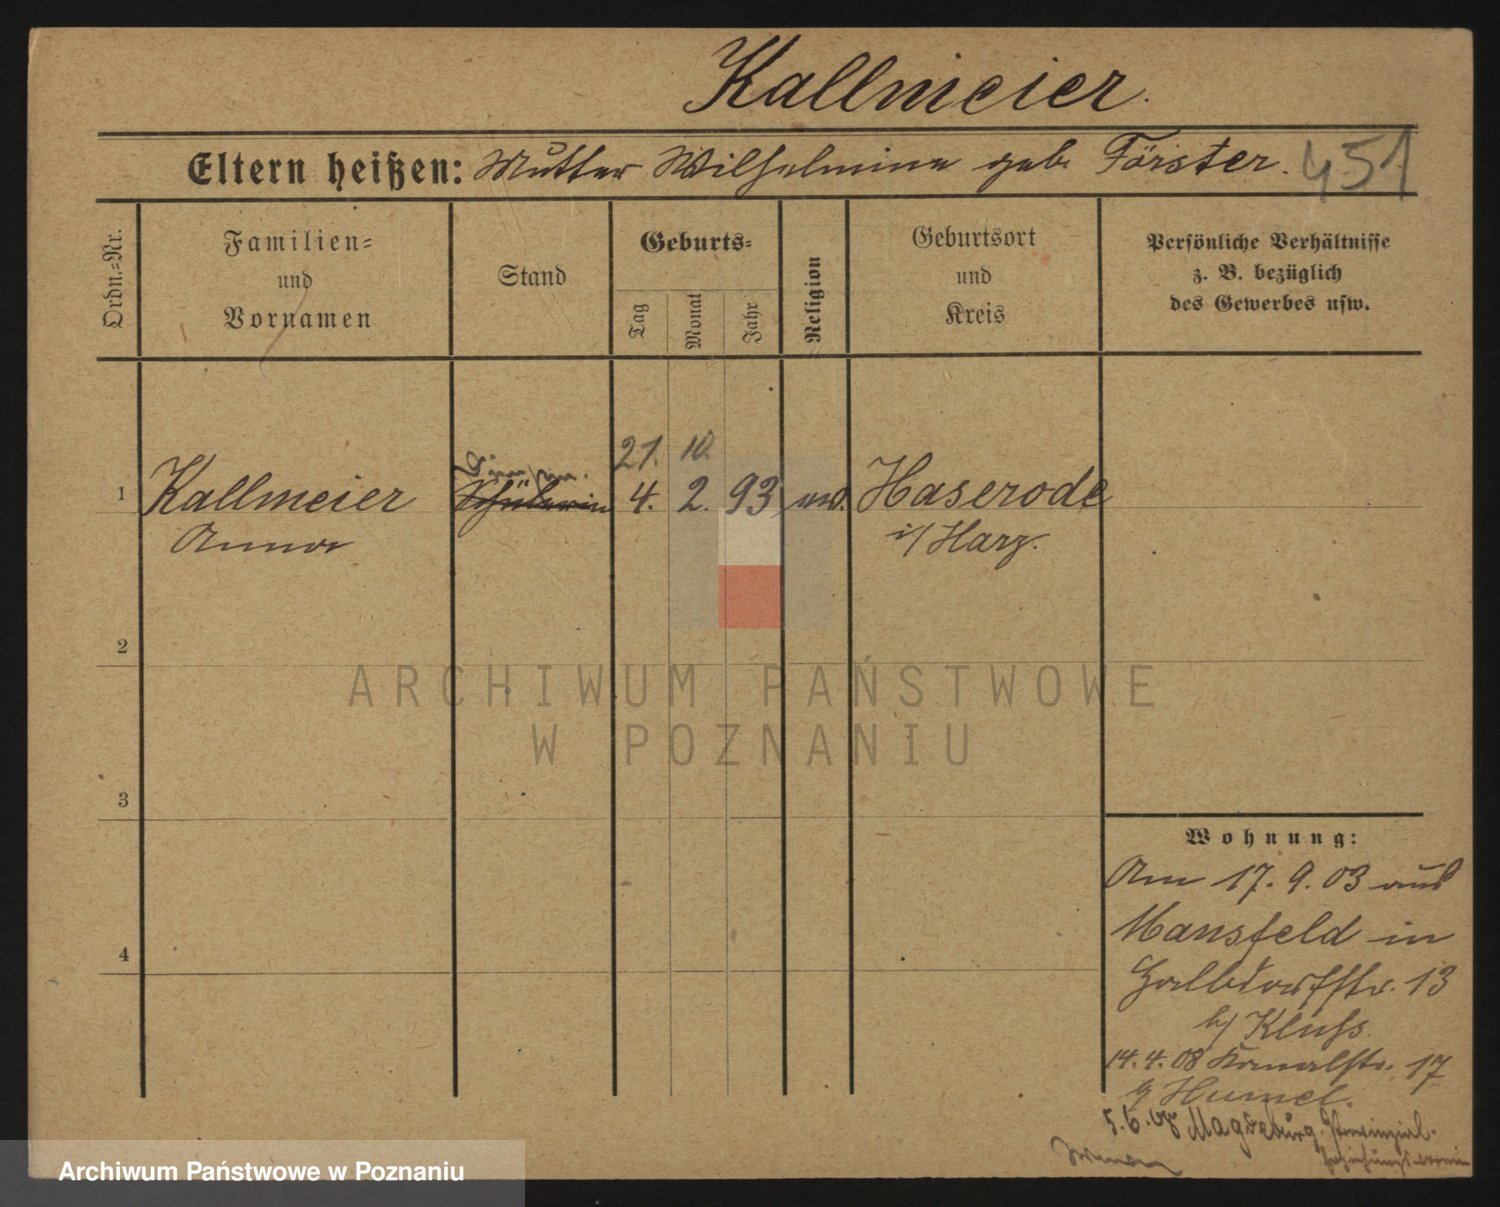 Kallmeier.
Eltern heißen: Mutter Wilhelmine geb. Förster. 451
Ordn.=Nr.
Familien=
und
Vornamen
Stand
Geburts=
Tag
Monat
Jahr
Religion
Geburtsort
und
Kreis
Persönliche Verhältnisse
z. B. bezüglich
des Gewerbes usw.
21. 10.
1 Kallmeier Schülerin 4. 2. 93 Haserode
Anna i/ Harz.
2
3
4
ARCHIWUM PAŃSTWOWE
W POZNANIU
Wohnung:
Am 17. 9. 03 aus
Mansfeld in
Halbdorfstr. 13
b/ Kluss.
14. 4. 08 Kanalstr. 17
5. 6. 08 Magdeburg. Provinzial-
Archiwum Państwowe w Poznaniu